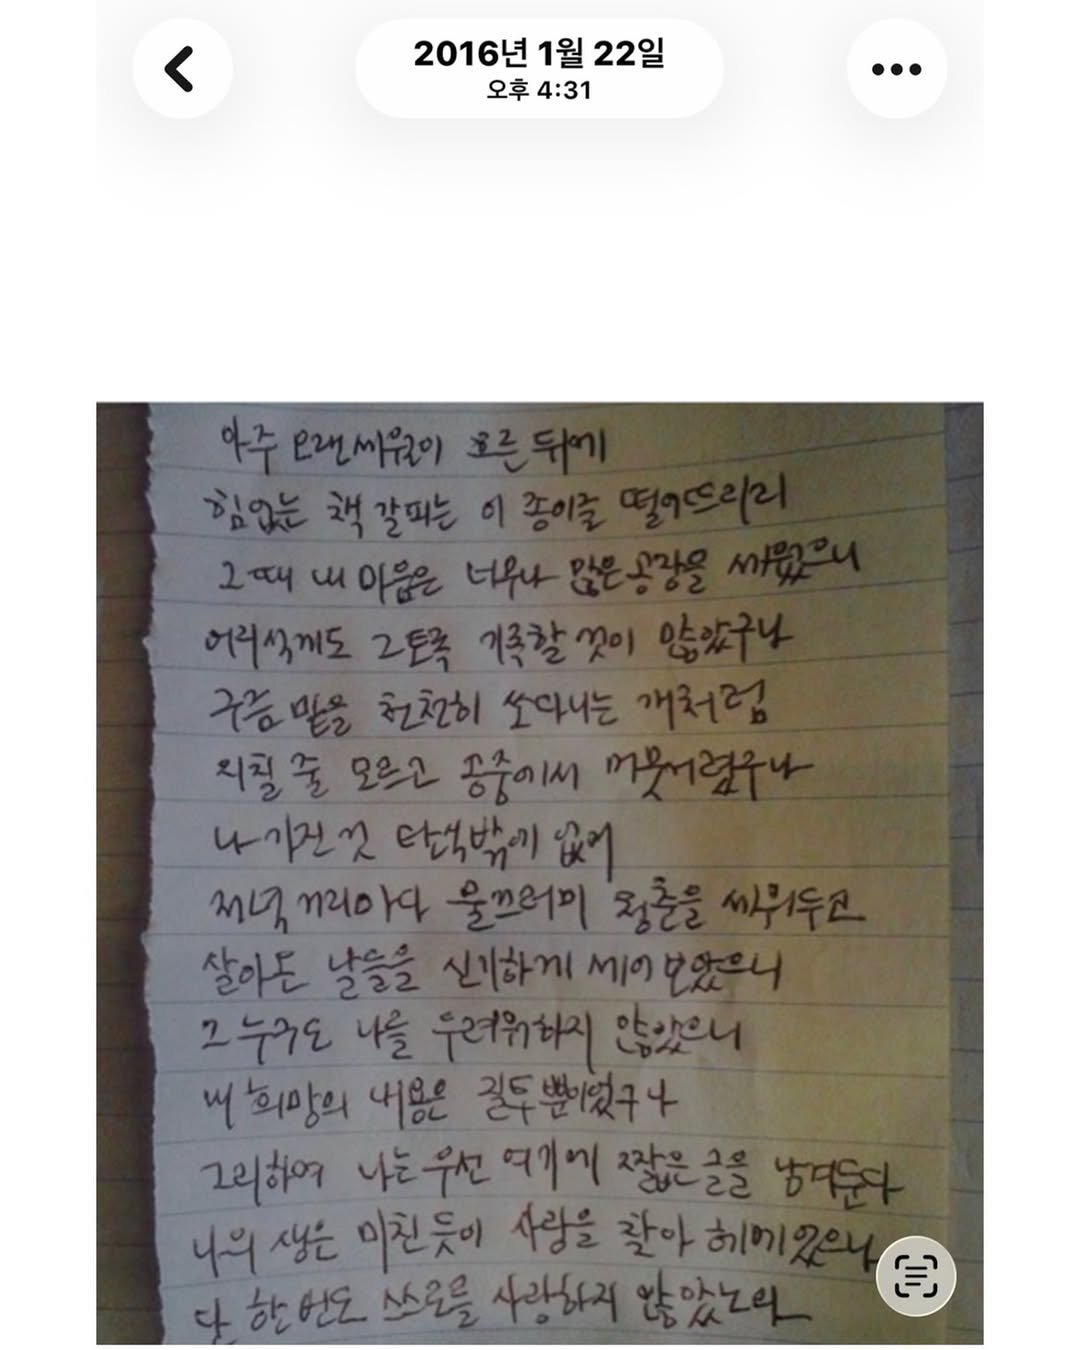 2016년 1월 22일
오후 4:31
아주 오랜 세월이 흐른 뒤에
힘없는 책갈피는 이 종이를 떨어뜨리리
그때 내 마음은 너무나 많은 공장을 세웠으니
어리석게도 그토록 기록할 것이 많았구나
구름 밑을 천천히 쏘다니는 개처럼
지칠 줄 모르고 공중에서 머뭇거렸구나
나 가진 것 탄식밖에 없어
저녁 거리마다 물끄러미 청춘을 세워두고
살아온 날들을 신기하게 세어보았으니
그 누구도 나를 두려워하지 않았으니
내 희망의 내용은 질투뿐이었구나
그리하여 나는 우선 여기에 짧은 글을 남겨둔다
나의 생은 미친듯이 사랑을 찾아 헤매었으나
단 한번도 스스로를 사랑하지 않았노라